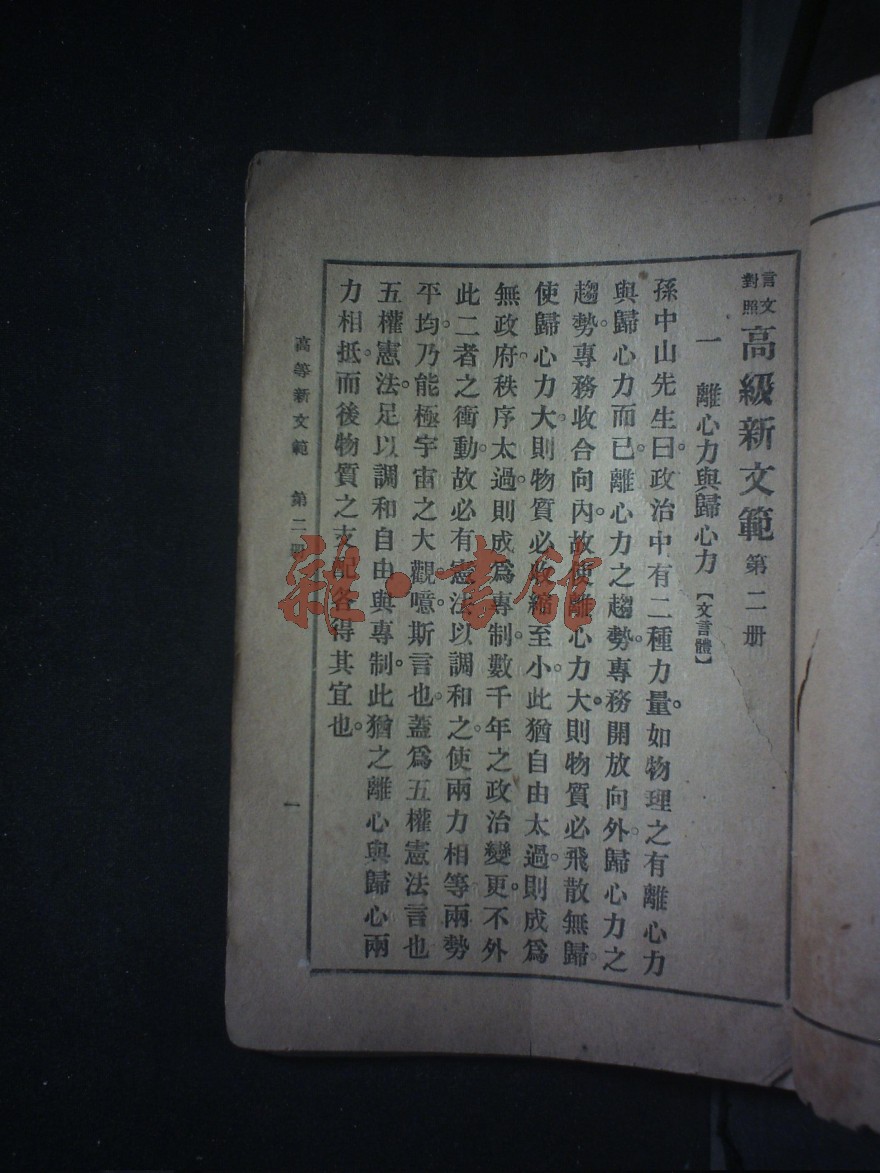 言文對照高級新文範 第二册
一 離心力與歸心力 【文言體】
孫中山先生曰。政治中有二種力量。如物理之有離心力
與歸心力而已。離心力之趨勢專務開放向外。歸心力之
趨勢專務收合向內。故使離心力大。則物質必飛散無歸。
使歸心力大。則物質必收縮至小。此猶自由太過。則成爲
無政府。秩序太過。則成爲專制。數千年之政治變更。不外
此二者之衝動。故必有憲法以調和之。使兩力相等。兩勢
平均。乃能極宇宙之大觀。噫。斯言也。蓋爲五權憲法言也
五權憲法。足以調和自由與專制。此猶之離心與歸心兩
力相抵。而後物質之支配各得其宜也。
高等新文範 第二册
一
雜·書館